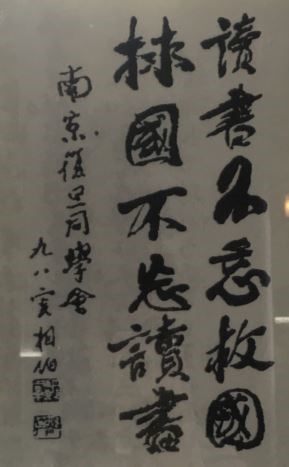 讀書不忘救國
救國不忘讀書
南京復旦同學會
九八叟相伯